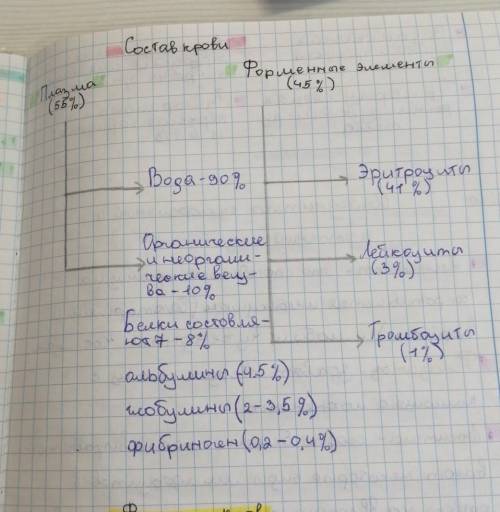 Состав крови
Плазма
(55%)
Форменные элементы
(45%)
Вода - 90%
Органические
и неоргани-
ческие вещ-
ва - 10%
Белки составля-
ют 7 - 8%
альбумины (4.5%)
глобулины (2 - 3,5%)
фибриноген (0,2 - 0,4%)
Эритроциты
(41%)
Лейкоциты
(3%)
Тромбоциты
(1%)